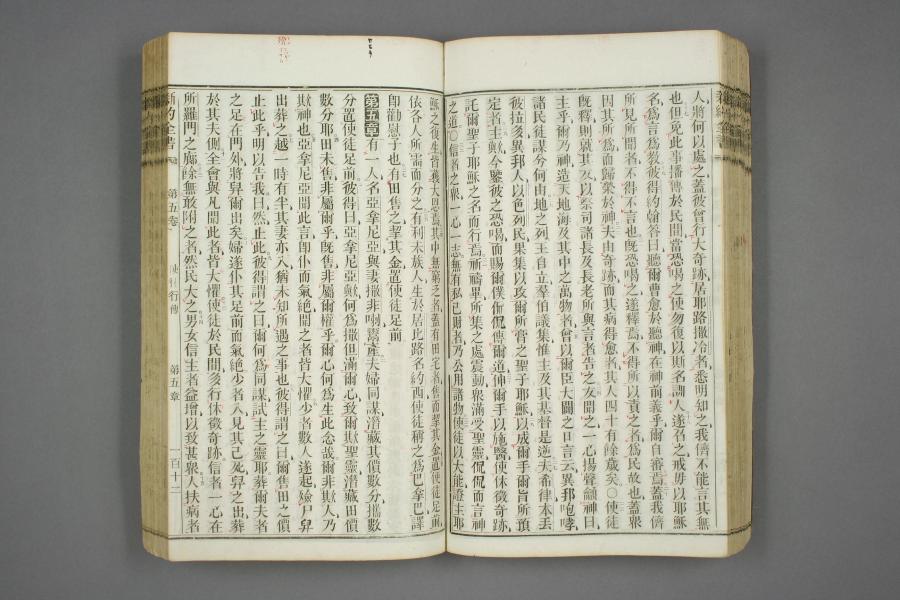 人將何以處之蓋彼曾行大奇跡居耶路撒冷者悉明知之我儕不能言其無
也但免此事播傳於民間當恐喝之使勿復以斯名謂人遂召之戒毋以耶穌
名爲言爲教彼得約翰答曰聽爾曹愈於聽神在神前義乎爾自審焉蓋我儕
所見所聞者不得不言也旣恐喝之遂釋焉不得所以責之者爲民故也蓋眾
因其所爲而歸榮於神夫由奇跡而其病得愈者其人四十有餘歲矣○使徒
旣釋則就其友以祭司諸長及長老所與言者告之友聞之一心揚聲籲神曰
主乎爾乃神造天地海及其中之萬物者曾以爾臣大闢之口言云異邦咆哮
諸民徒謀分何由地之列王自立羣伯議集惟主及其基督是逆夫希律本丟
彼拉多異邦人以色列民果集以攻爾所膏之聖子耶穌以成爾手爾旨所預
定者主與今鑒彼之恐喝而賜爾僕侃侃傳爾道伸爾手以施醫使休徵奇跡
託爾聖子耶穌之名而行焉祈禱畢所集之處震動眾滿受聖靈侃侃而言神
之道○信者之眾一心一志無有私己爾者乃公用諸物使徒以大能證主耶
穌之復生皆獲大恩焉其中無窮乏者蓋有田宅者售而挈其金置使徒足前
依各人所需而分之有利未族人生於居比路名約西使徒稱之爲巴拿巴譯
卽勸慰子也有田售之挈其金置使徒足前
第五章 有一人名亞拿尼亞與妻撒非喇鬻產夫婦同謀潛藏其價數分攜數
分置使徒足前彼得曰亞拿尼亞與何爲撒但滿爾心致爾欺聖靈潛藏田價
數分耶田未售非屬爾乎旣售非屬爾權乎爾心何爲生此念哉爾非欺人乃
欺神也亞拿尼亞聞此言卽仆而氣絕聞之者皆大懼少者數人遂起殮尸舁
出葬之越一時有半其妻亦入猶未知所遇之事也彼得謂之曰爾售田之價
止此乎明以告我曰然止此彼得謂之曰爾何爲同謀試主之靈耶葬爾夫者
之足在門外將舁爾出矣婦遂仆其足前而氣絕少者入見其已死舁之出葬
於其夫側全會與凡聞此者皆大懼使徒於民間多行休徵奇跡信者一心在
所羅門之廊餘無敢附之者然民大之男女信主者益增以致甚眾人扶病者
新約全書
第五卷
使徒行傳
第五章
一百十二